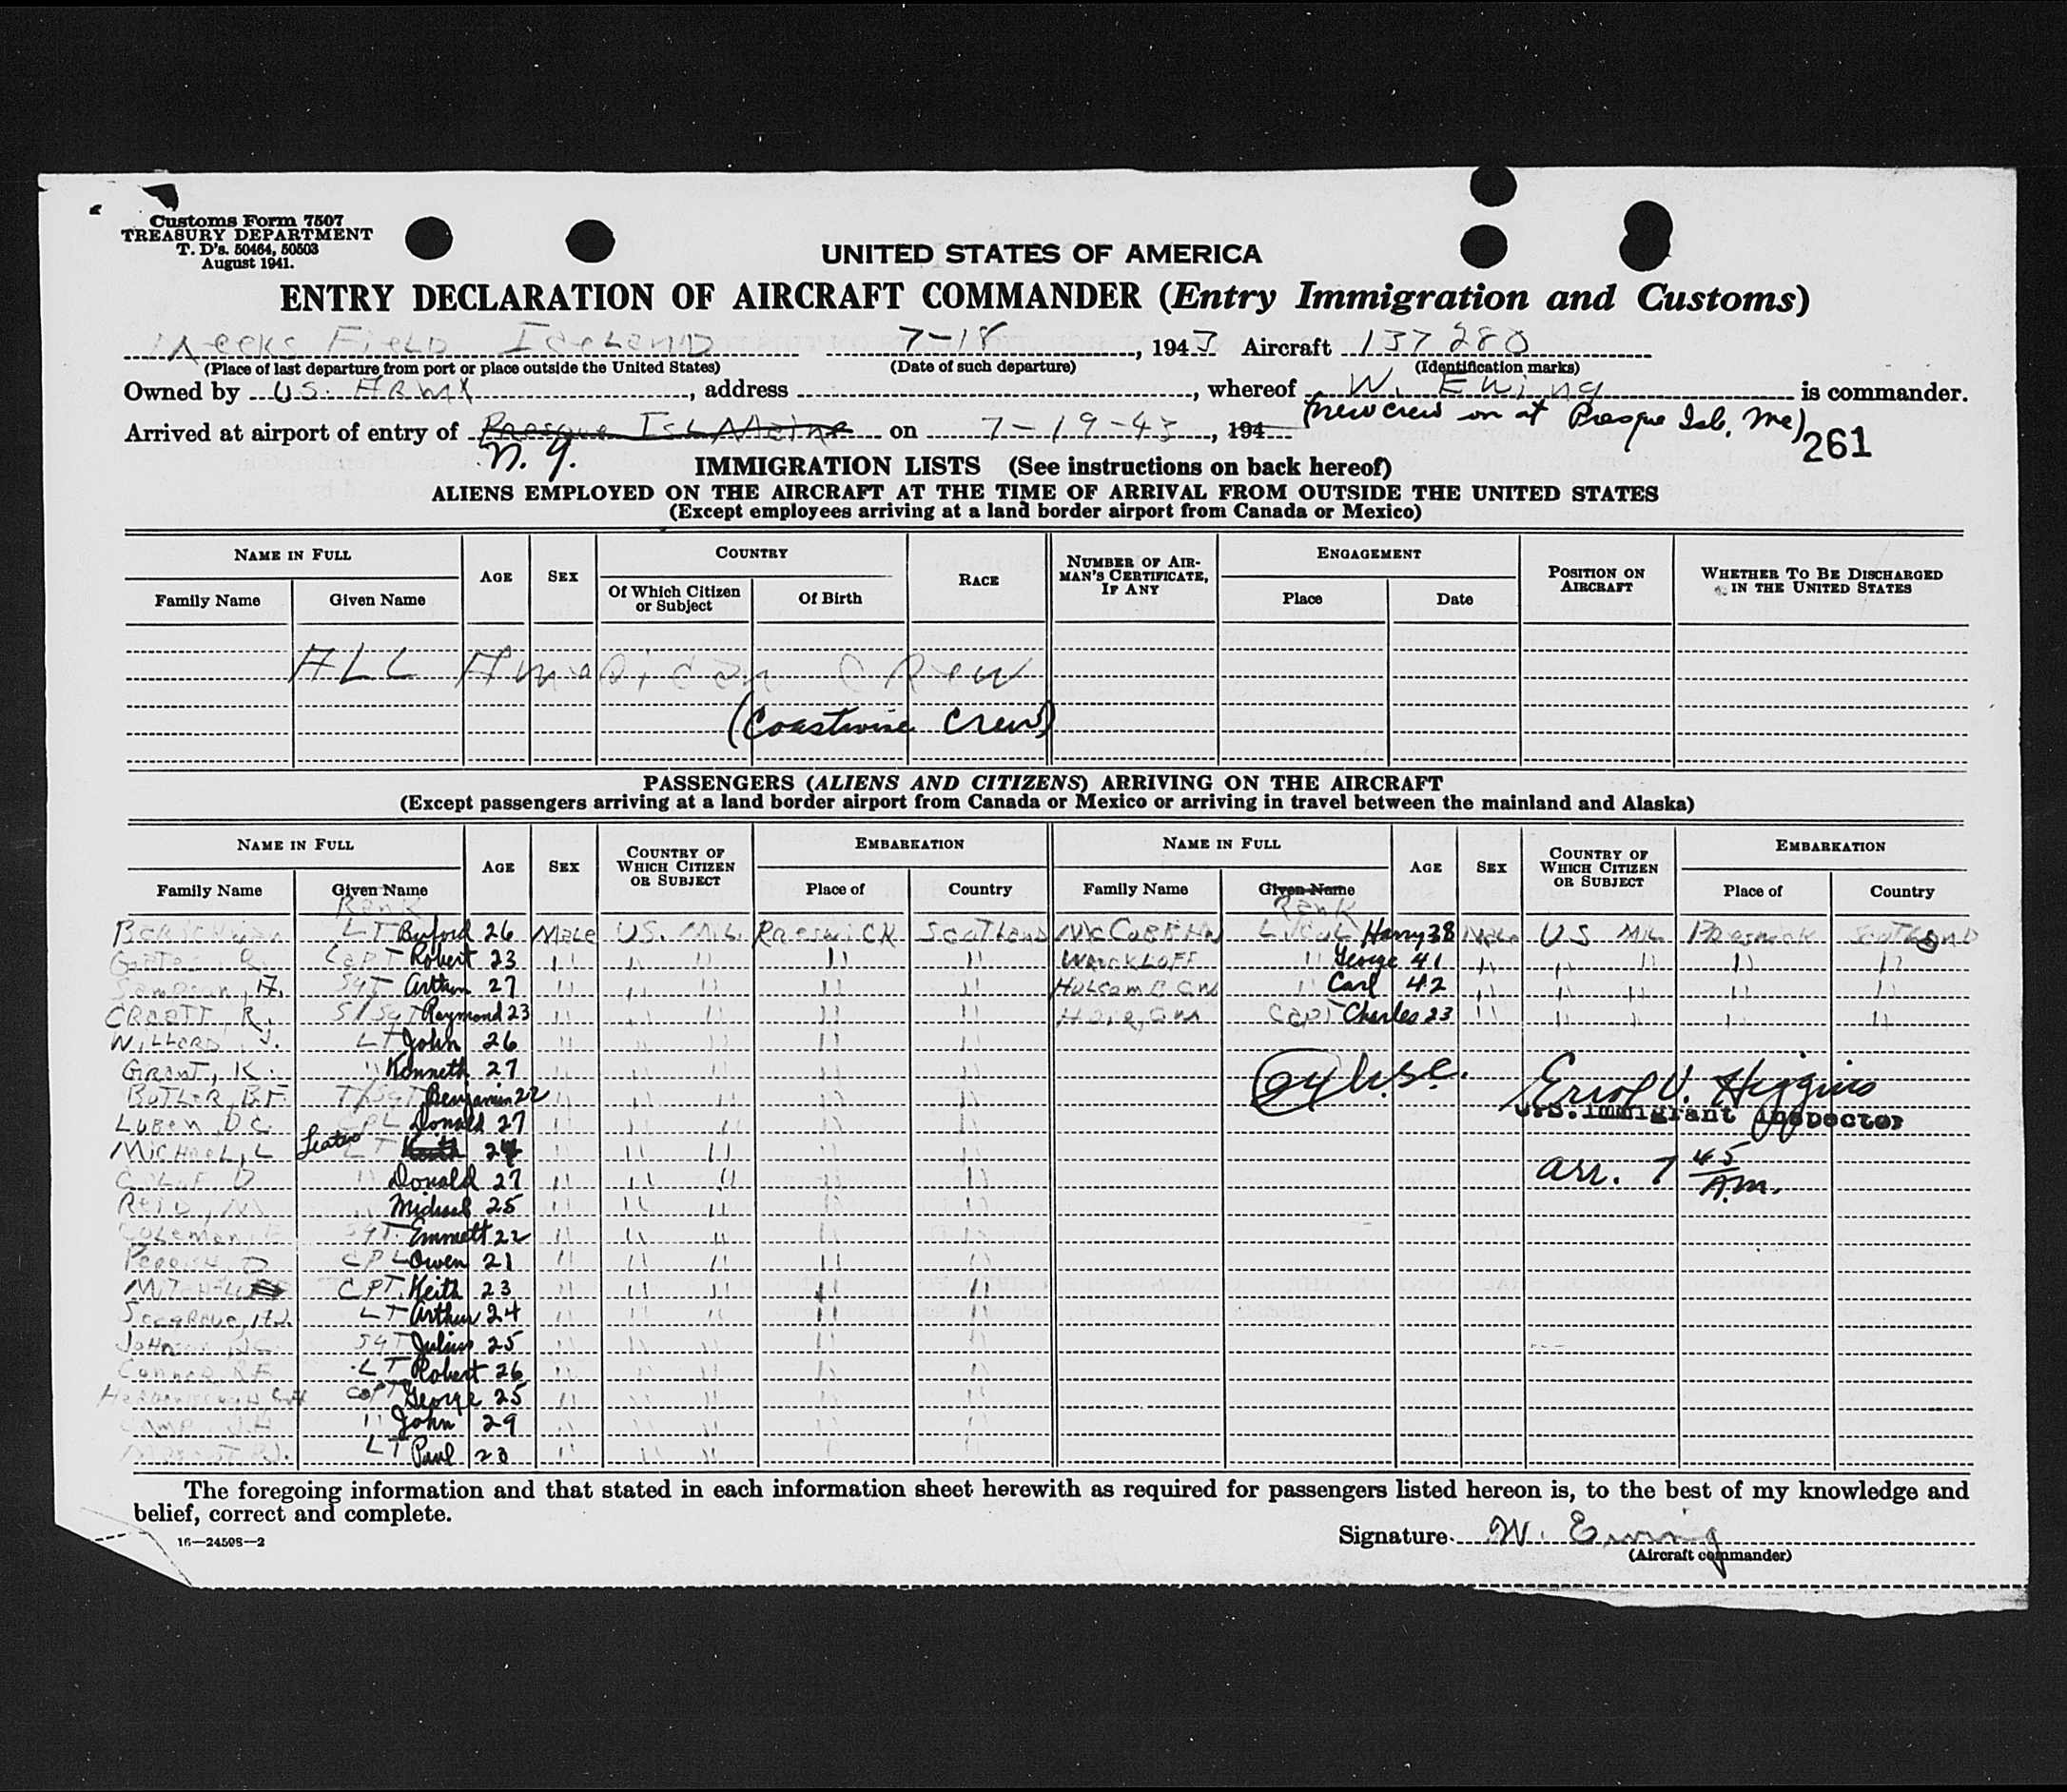 Customs Form 7507
TREASURY DEPARTMENT
T. D's. 50464, 50503
August 1941.
UNITED STATES OF AMERICA
ENTRY DECLARATION OF AIRCRAFT COMMANDER (Entry Immigration and Customs)
Meeks Field Iceland 7-18, 1943 Aircraft 137280
(Place of last departure from port or place outside the United States) (Date of such departure) (Identification marks)
Owned by U.S. Army, address, whereof W. Ewing is commander.
(new crew on at Presque Isle, Me)
Arrived at airport of entry of Presque Isl Maine on 7-19-43, 194
N. Y. 261
IMMIGRATION LISTS (See instructions on back hereof)
ALIENS EMPLOYED ON THE AIRCRAFT AT THE TIME OF ARRIVAL FROM OUTSIDE THE UNITED STATES
(Except employees arriving at a land border airport from Canada or Mexico)
NAME IN FULL AGE SEX COUNTRY RACE NUMBER OF AIRMAN'S CERTIFICATE, IF ANY ENGAGEMENT POSITION ON AIRCRAFT WHETHER TO BE DISCHARGED IN THE UNITED STATES
Family Name Given Name Of Which Citizen or Subject Of Birth Place Date
ALL American Crew
(Coastwise Crew)
PASSENGERS (ALIENS AND CITIZENS) ARRIVING ON THE AIRCRAFT
(Except passengers arriving at a land border airport from Canada or Mexico or arriving in travel between the mainland and Alaska)
NAME IN FULL AGE SEX COUNTRY OF WHICH CITIZEN OR SUBJECT EMBARKATION NAME IN FULL AGE SEX COUNTRY OF WHICH CITIZEN OR SUBJECT EMBARKATION
Family Name Given Name Place of Country Family Name Given Name Place of Country
Rank Rank
LT Buford 26 Male U.S. Mil. Prestwick Scotland Harry 38 Male US Mil Prestwick Scotland
R. Capt Robert 23 " " " " " " George 41 " " " " "
Sampson, A. Sgt Arthur 27 " " " " " Holcomb " Carl 42 " " " " "
R. S/Sgt Raymond 23 " " " " " Capt Charles 23 " " " " "
Willard, J. LT John 26 " " " " "
Grant, K. " Kenneth 27 " " " " "
Butler, B.F. T/Sgt Benjamin 22 " " " " "
Luben, D.C. CPL Donald 27 " " " " "
Michael, L LT Keith 24 " " "
D " Donald 27 " " " " "
Reid, M " Michael 25 " " " " "
Coleman, E Sgt. Emmett 22 " " " " "
D CPL Owen 21 " " " " "
CPT. Keith 23 " " " " "
LT Arthur 24 " " " " "
Johnson Sgt Julius 25 " " " " "
Connor, R.F. LT Robert 26 " " " " "
Capt George 25 " " " " "
Camp, J.H. " John 29 " " " " "
LT Paul 23 " " " " "
24 USC.
Errol V. Higgins
U.S. Immigrant Inspector
arr. 7 45 A.m.
The foregoing information and that stated in each information sheet herewith as required for passengers listed hereon is, to the best of my knowledge and
belief, correct and complete.
Signature W. Ewing
16—24598—2 (Aircraft commander)